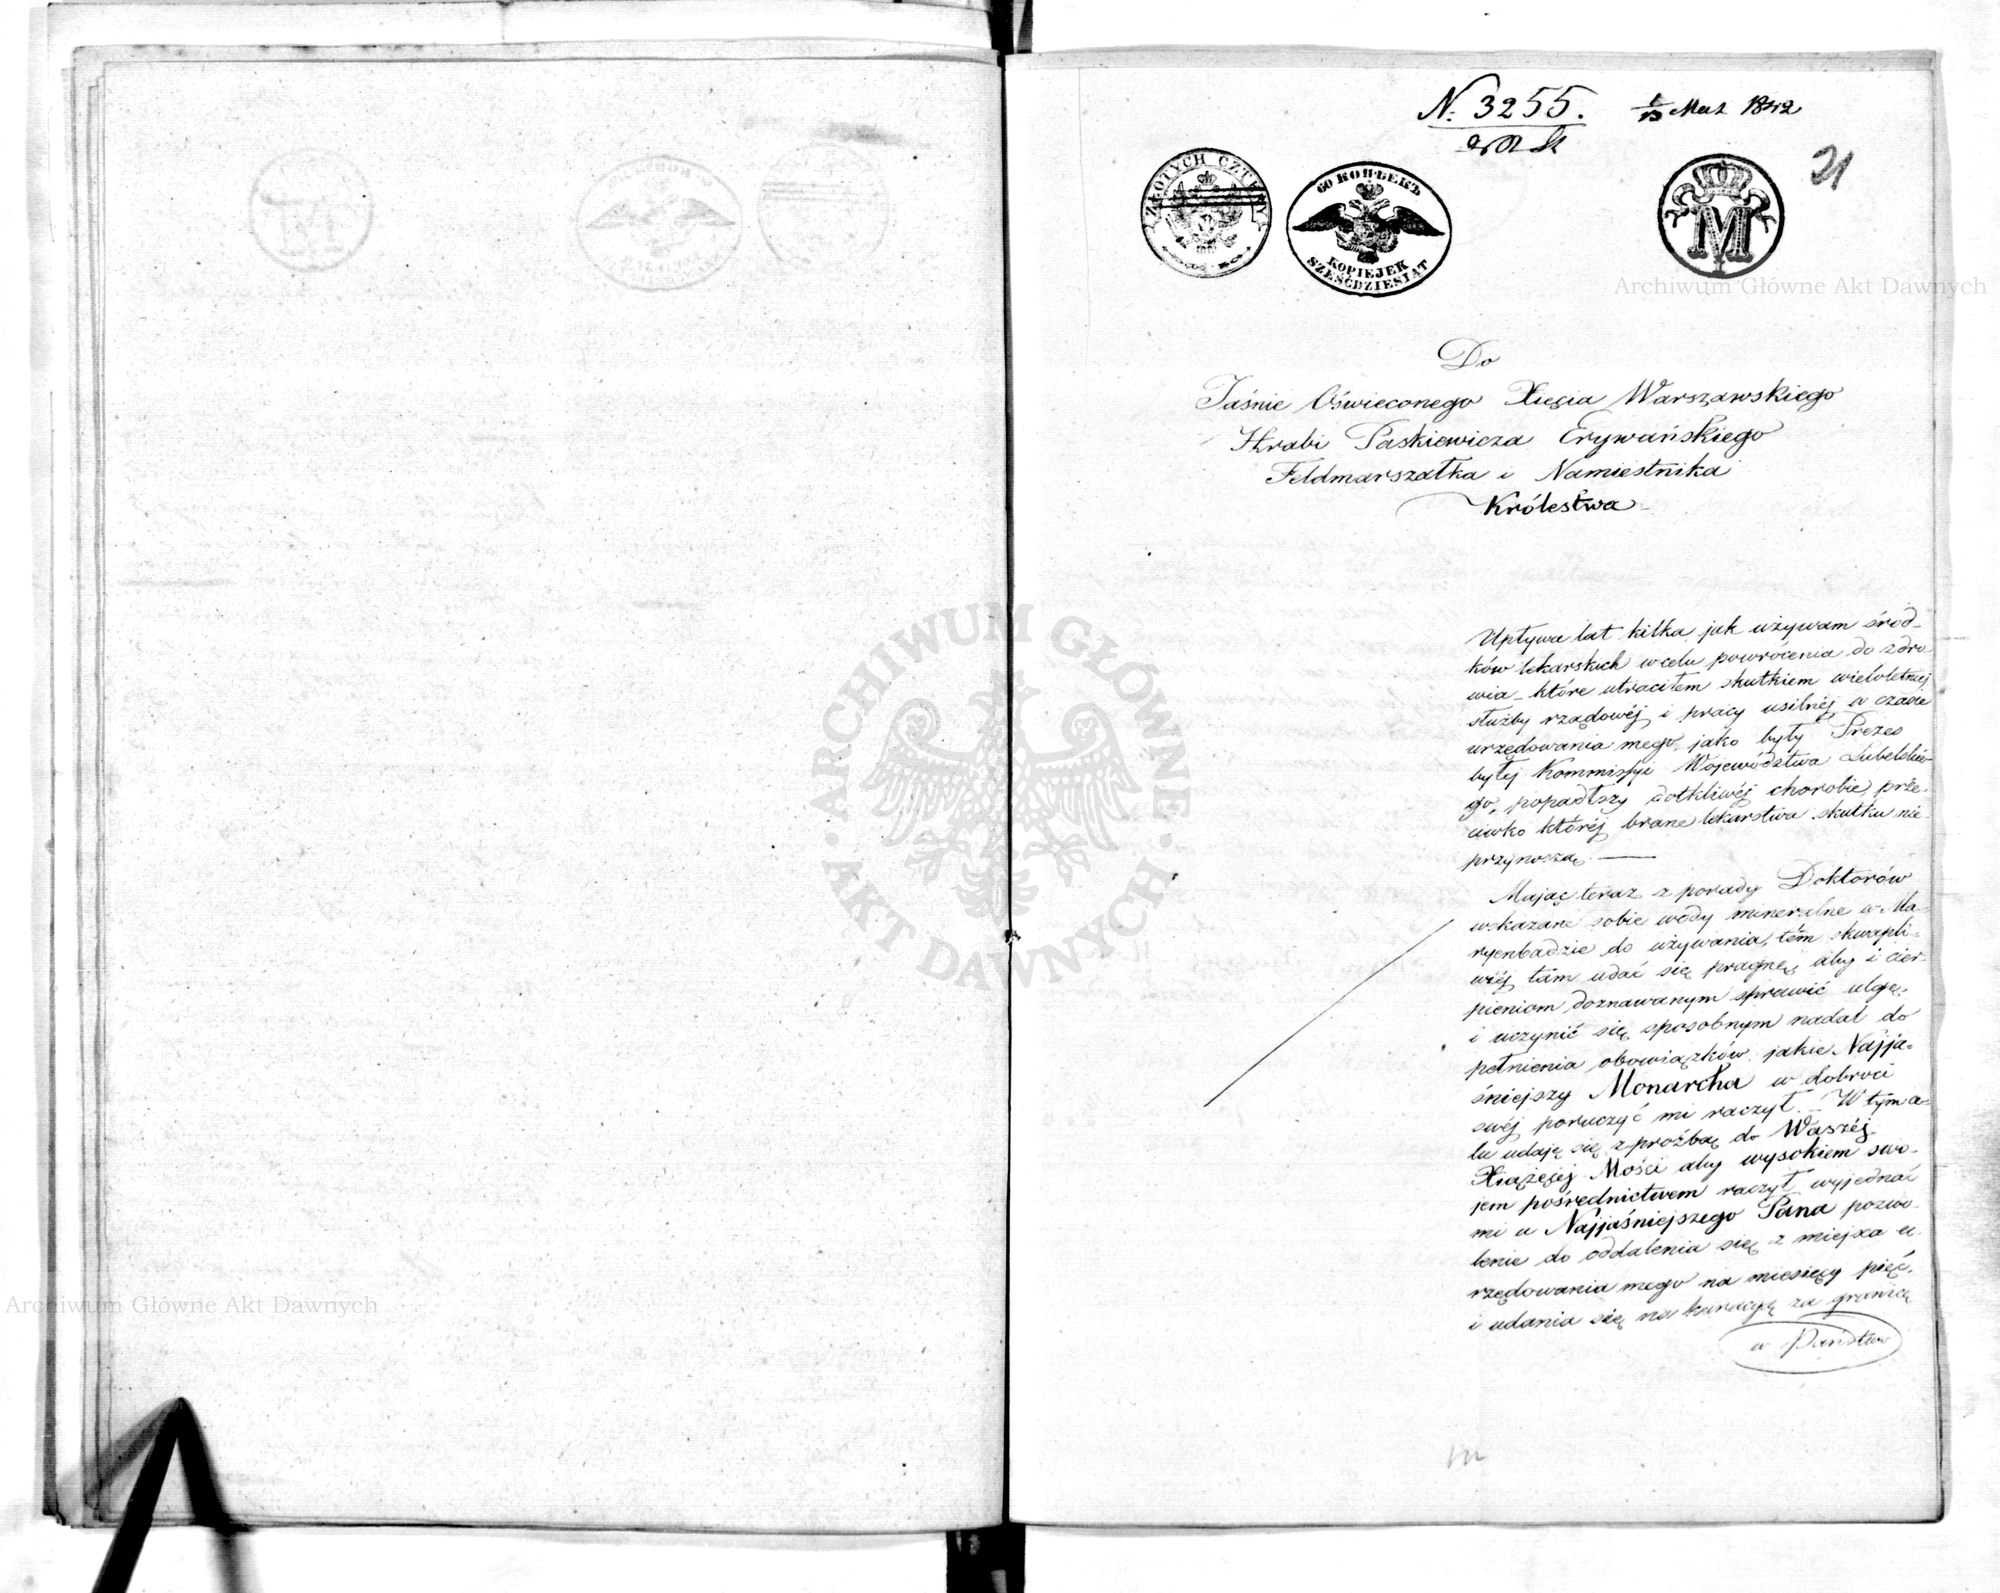 N. 3255.
1/13 Mai 1842
21
ZŁOTYCH CZTERY
60 КОПѢЕКЪ
KOPIEJEK
SZEŚĆDZIESIĄT
M
Archiwum Główne Akt Dawnych
Do
Jaśnie Oświeconego Xięcia Warszawskiego
Hrabi Paskiewicza Erywańskiego
Feldmarszałka i Namiestnika
Królestwa
Upływa lat kilka jak używam środ-
ków lekarskich w celu powrócenia do zdro
wia – które utraciłem skutkiem wieloletniej
służby rządowéj i pracy usilnéj w czasie
urzędowania mego, jako były Prezes
byłej Kommissyi Województwa Lubelskie-
go, popadłszy dotkliwéj chorobie, prze-
ciwko któréj brane lekarstwa skutku nie
przynoszą. —
Mając teraz z porady Doktorów
wskazane sobie wody mineralne w Ma-
ryenbadzie do używania, tém skwapli-
wiéj tam udać się pragnę, aby i cier-
pieniom doznawanym sprawić ulgę,
i uczynić się sposobnym nadal do
pełnienia obowiązków jakie Najja-
śniejszy Monarcha w dobroci
swéj poruczyć mi raczył. – W tym ce-
lu udaję się z prożbą do Waszéj
Xiążęcéj Mości aby wysokiem swo-
jem pośrednictwem raczył wyjednać
mi u Najjaśniejszego Pana pozwo-
lenie do oddalenia się z miejsca u-
rzędowania mego na miesięcy pięć,
i udania się na kuracyą za granicę
w Państwo
ARCHIWUM GŁÓWNE
AKT DAWNYCH
Archiwum Główne Akt Dawnych